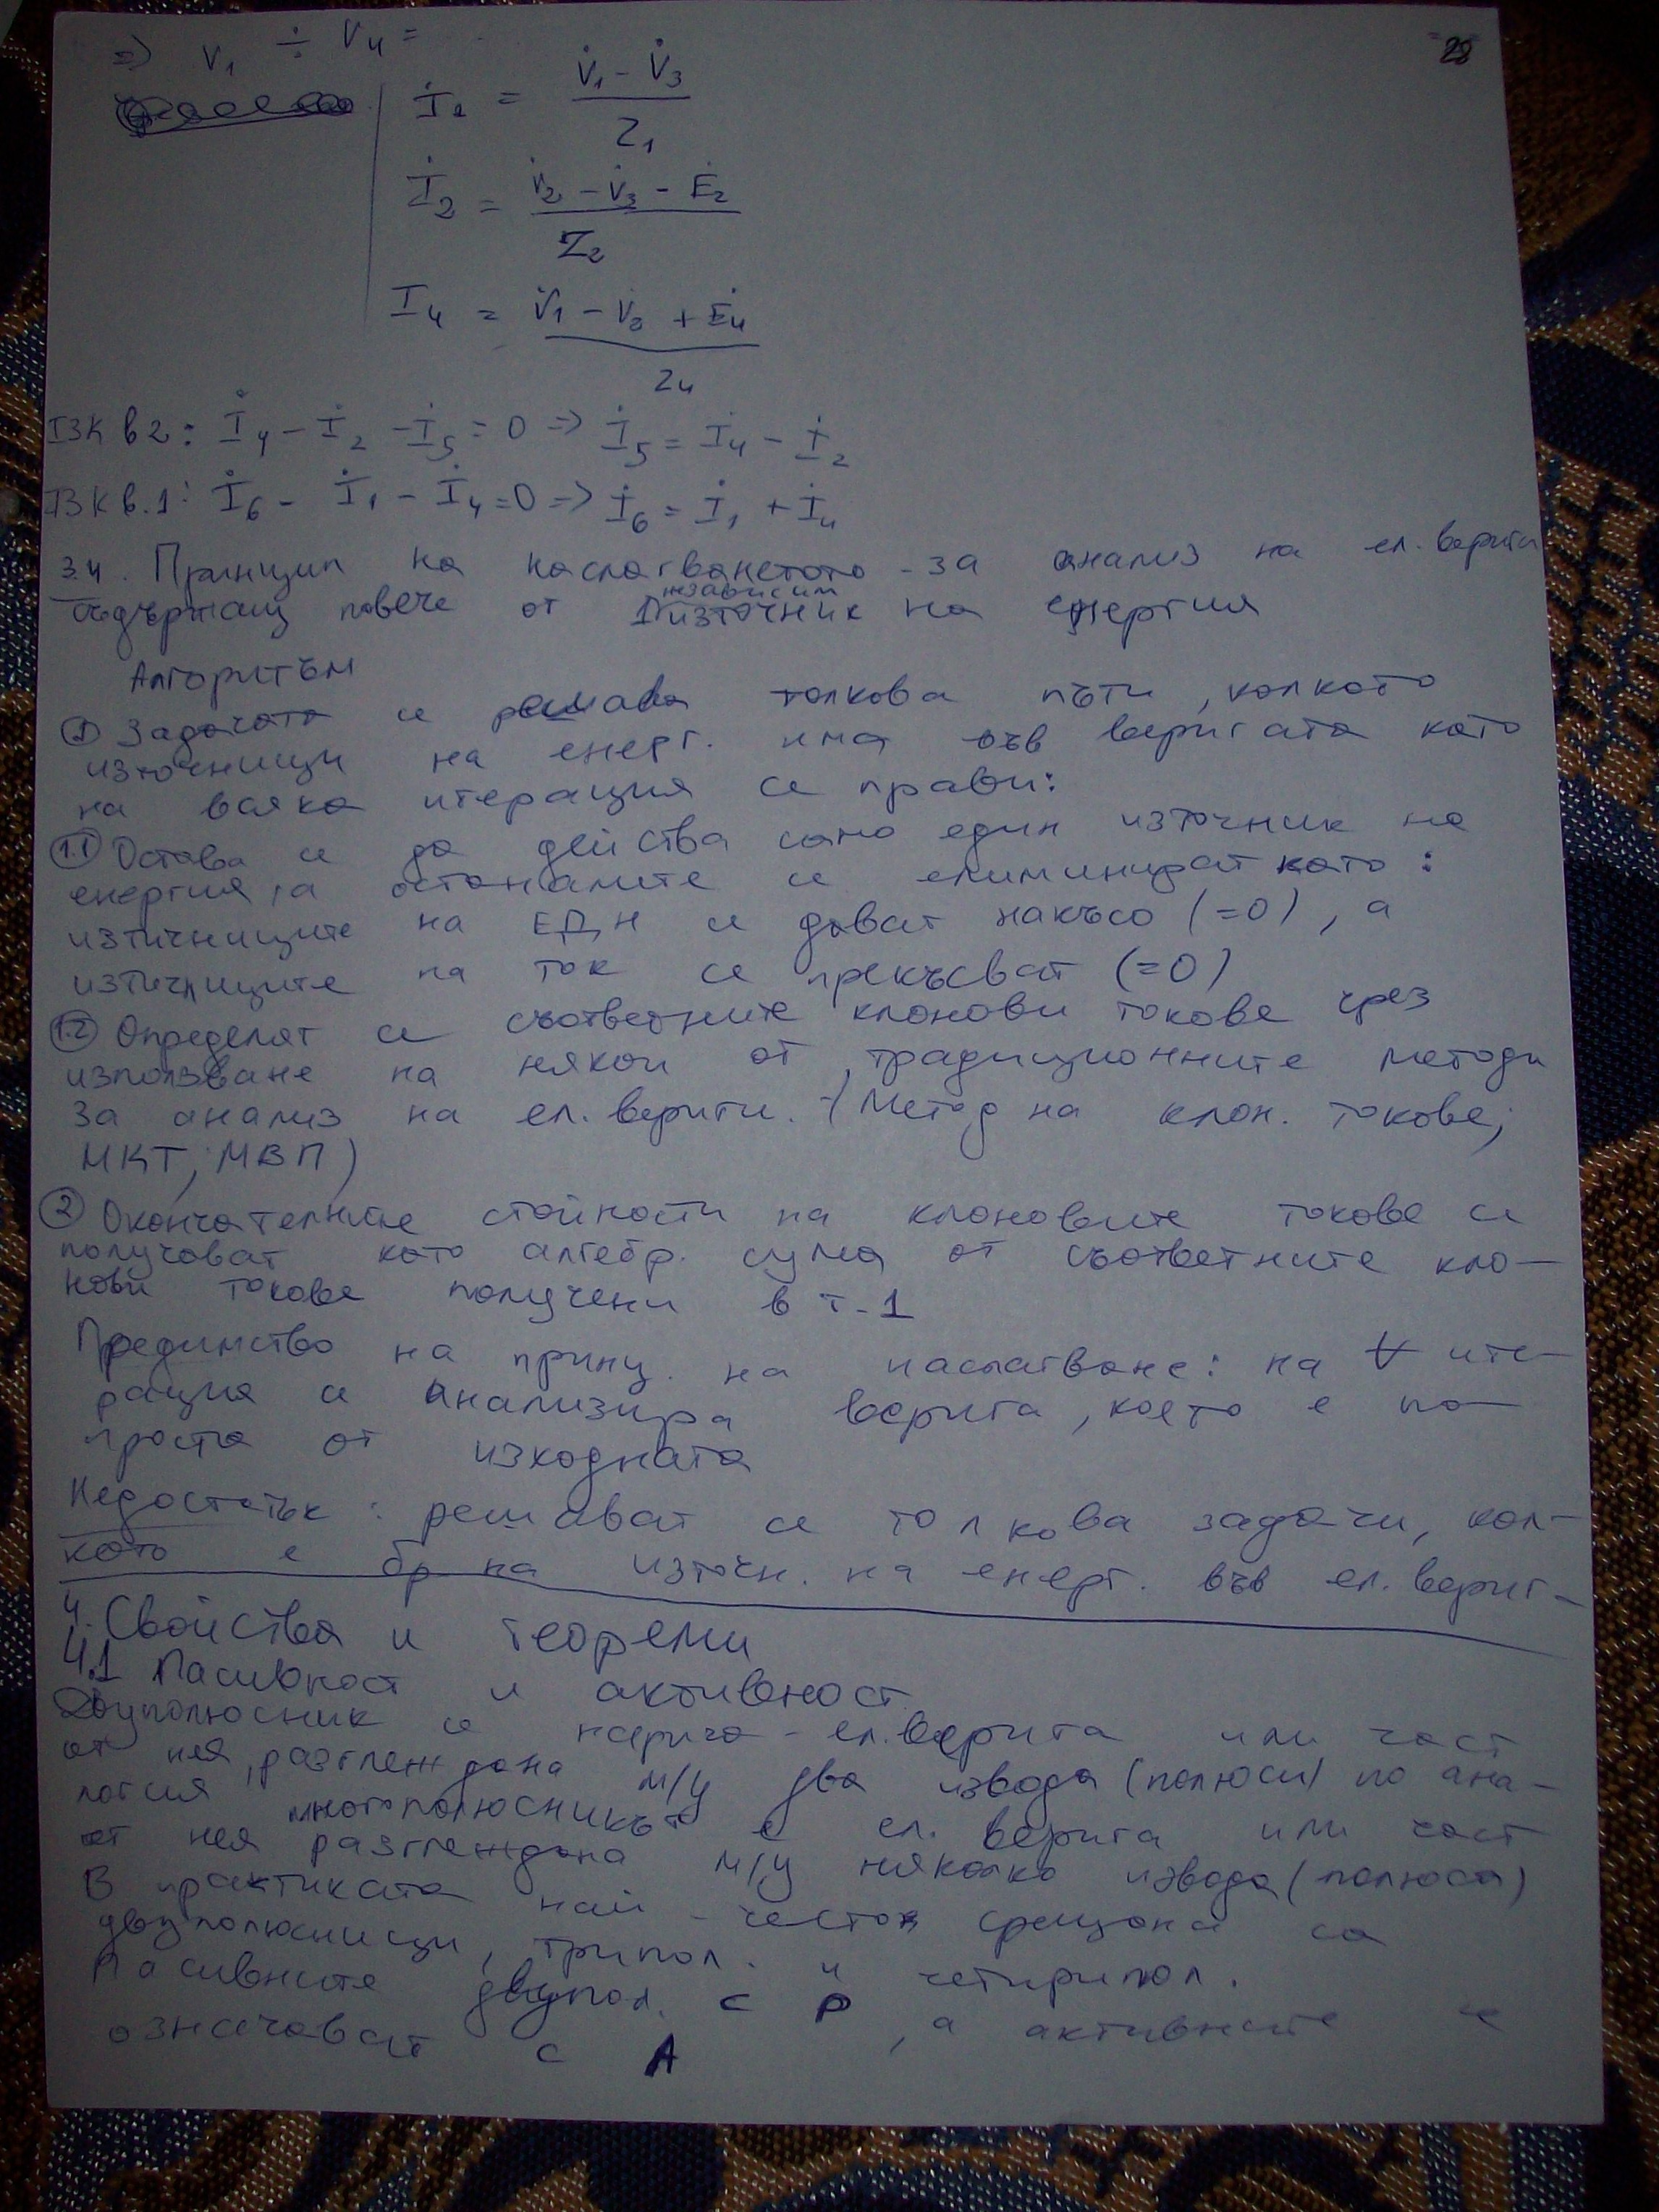 28
=> V₁ ÷ V₄ =
İ₂ = (V̇₁ - V̇₃) / Z₁
İ₂ = (V̇₂ - V̇₃ - Ė₂) / Z₂
I₄ = (V̇₁ - V̇₂ + Ė₄) / Z₄
IЗК в 2: İ₄ - İ₂ - İ₅ = 0 => İ₅ = İ₄ - İ₂
IЗК в.1: İ₆ - İ₁ - İ₄ = 0 => İ₆ = İ₁ + İ₄
3.4. Принцип на наслагването - за анализ на ел. вериги
съдържащ повече от 1 независим източник на енергия
Алгоритъм
① Задачата се решава толкова пъти, колкото
източници на енерг. има във веригата като
на всяка итерация се прави:
1.1 Остава се да действа само един източник на
енергия, а останалите се елиминират като:
източниците на ЕДН се дават накъсо (=0), а
източниците на ток се прекъсват (=0)
1.2 Определят се съответните клонови токове чрез
използване на някои от традиционните методи
за анализ на ел. вериги. (Метод на клон. токове;
МКТ; МВП)
② Окончателните стойности на клоновите токове се
получават като алгебр. сума от съответните кло-
нови токове получени в т. 1
Предимство на принц. на наслагване: на ∀ ите-
рация се анализира верига, която е по-
проста от изходната
Недостатък: решават се толкова задачи, кол-
кото е бр. на източн. на енерг. във ел. вериг-
4. Свойства и теореми
4.1 Пасивност и активност
Двуполюсник се нарича - ел. верига или част
от нея, разглеждана м/у два извода (полюси) по ана-
логия многополюсникът е ел. верига или част
от нея разглеждана м/у няколко извода (полюса)
В практиката най-често срещани са
двуполюсници, трипол. и четирипол.
Пасивните двупол. с P, а активните се
означават с A